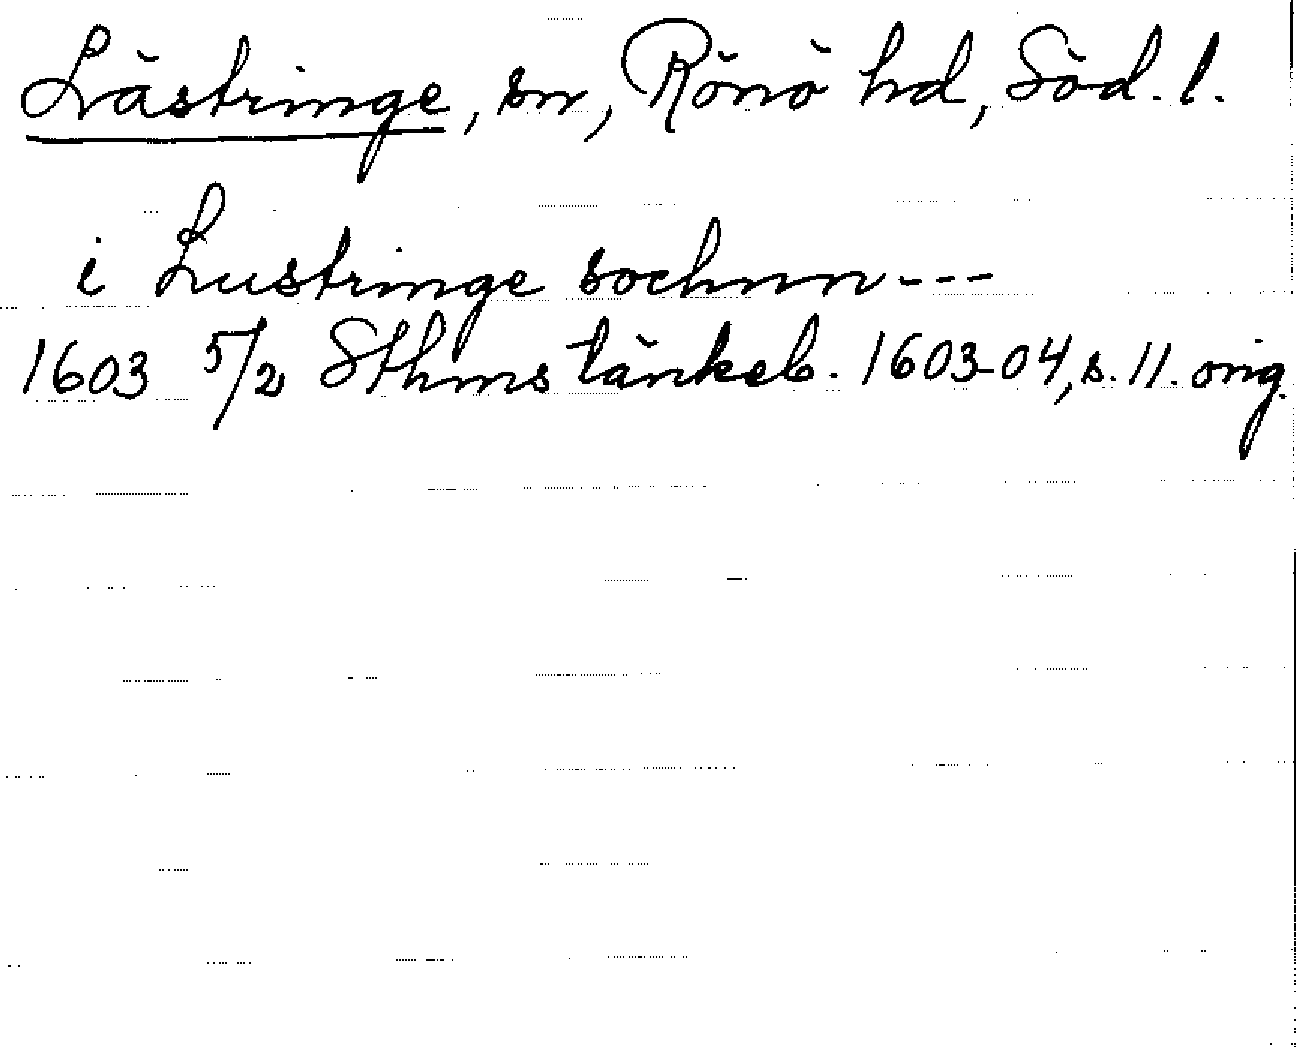 Lästringe, sn, Rönö hd, Söd. l.
i Lustringe sochnn---
1603 5/2 Sthms tänkeb. 1603-04, s. 11. orig.